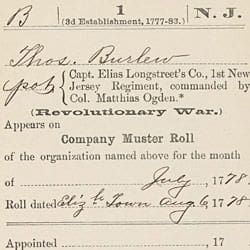 B 1 N. J.
(3d Establishment, 1777-83.)
Thos. Burlew
pvt, { Capt. Elias Longstreet's Co., 1st New
Jersey Regiment, commanded by
Col. Matthias Ogden.*
(Revolutionary War.)
Appears on
Company Muster Roll
of the organization named above for the month
of July, 1778.
Roll dated Eliz th Town Aug. 6, 1778.
Appointed , 17